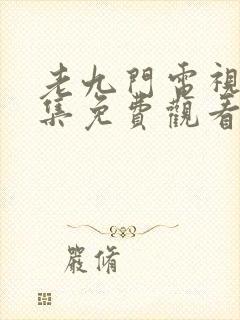 老九門電視
集免費觀看
嚴脩